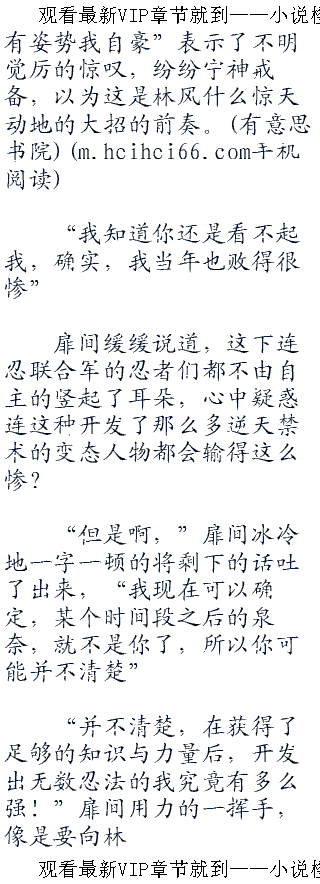 观看最新VIP章节就到——小说检
有姿势我自豪”表示了不明
觉厉的惊叹，纷纷宁神戒
备，以为这是林风什么惊天
动地的大招的前奏。(有意思
书院)(m.hcihci66.com手机
阅读)
“我知道你还是看不起
我，确实，我当年也败得很
惨”
扉间缓缓说道，这下连
忍联合军的忍者们都不由自
主的竖起了耳朵，心中疑惑
连这种开发了那么多逆天禁
术的变态人物都会输得这么
惨？
“但是啊，”扉间冰冷
地一字一顿的将剩下的话吐
了出来，“我现在可以确
定，某个时间段之后的泉
奈，就不是你了，所以你可
能并不清楚”
“并不清楚，在获得了
足够的知识与力量后，开发
出无数忍法的我究竟有多么
强！”扉间用力的一挥手，
像是要向林
观看最新VIP章节就到——小说检